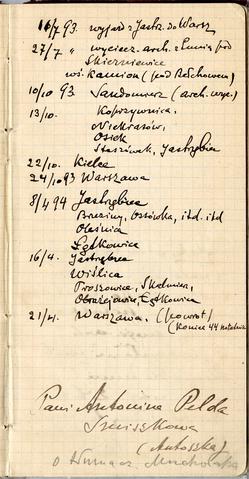 16/7 93. wyjazd z Jastrz. do Warsz
27/7 " wyciecz. arch. z Łunią pod
Skierniewice
wś. Kamion (pod Bełchowem)
10/10 93 Sandomierz (arch. wyc.)
13/10. Koprzywnica,
Niekrasów,
Osiek
Staszówek, Jastrzębia
22/10. Kielce
24/10 93 Warszawa
8/4 94 Jastrzębia
Brzeziny, Ostówka, itd. itd
Oleśnia
Łętkowice
16/4. Jastrzębia
Wiślica
Proszowice, Skalmierz,
Obrażejowice, Łętkowice
21/4. Warszawa. (powrót)
(koniec 44
Pani Antonina Pelda
(Antosska)